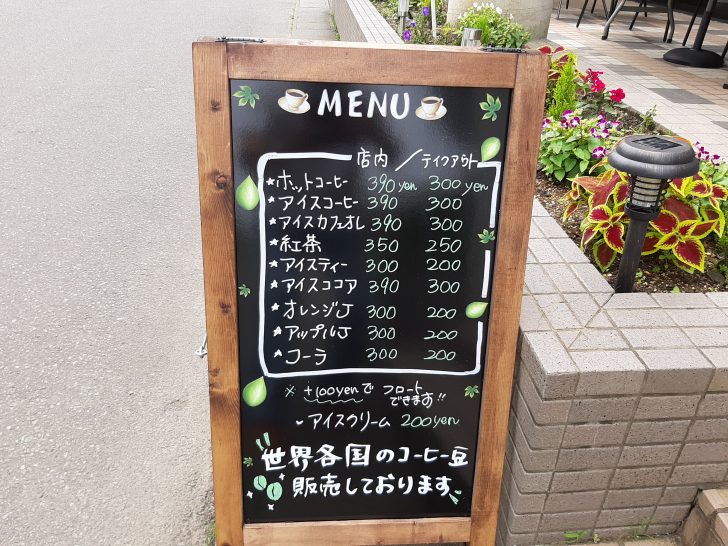 MENU
店内／テイクアウト
★ホットコーヒー 390yen 300yen
★アイスコーヒー 390 300
★アイスカフェオレ 390 300
★紅茶 350 250
★アイスティー 300 200
★アイスココア 390 300
★オレンジJ 300 200
★アップルJ 300 200
★コーラ 300 200
※ +100yenで フロート
できます!!
アイスクリーム 200yen
世界各国のコーヒー豆
販売しております